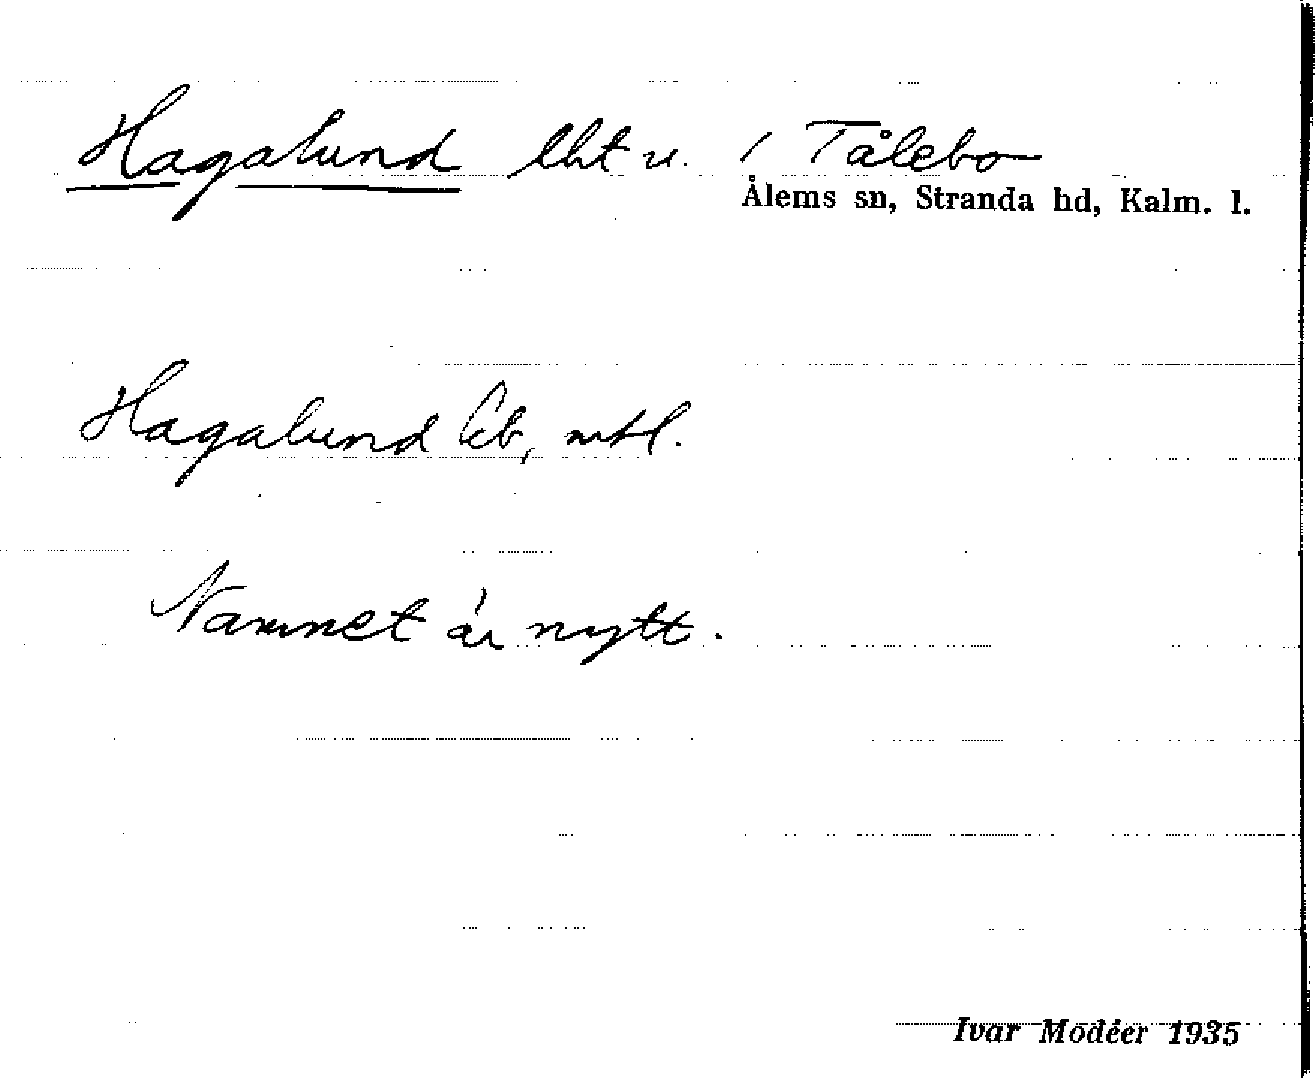 Hagalund lht u. i Tålebo
Ålems sn, Stranda hd, Kalm. l.
Hagalund kb, mtl.
Namnet är nytt.
Ivar Modéer 1935